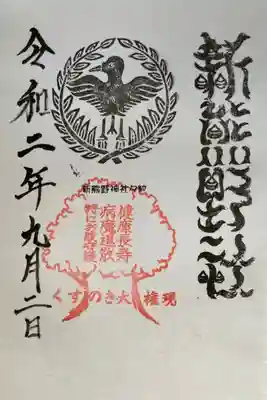 新熊野神社
新熊野神社
健康長寿
病魔退散
特にお腹守護
くすのき大権現
令和二年九月二日